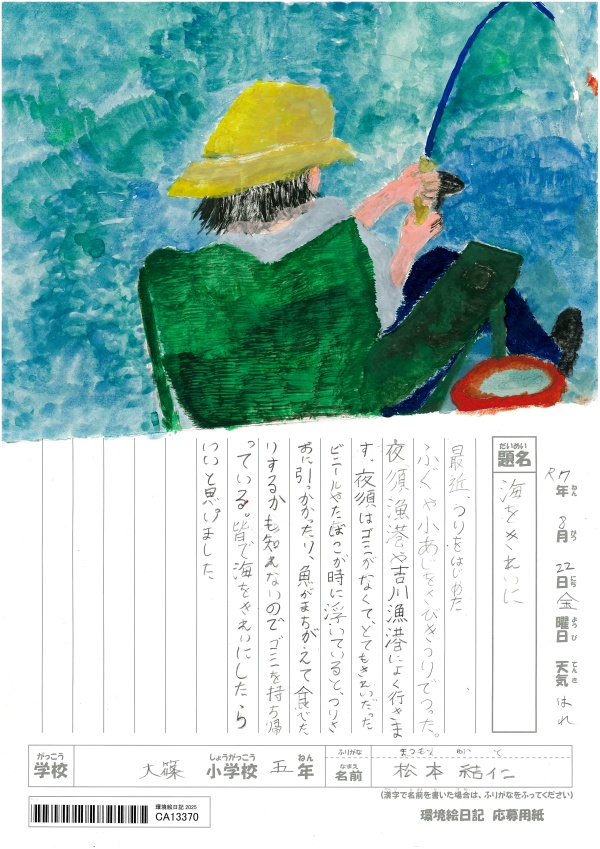 R7年 8月 22日 金曜日 天気 はれ
ねん がつ にち ようび てんき
だいめい
題名
海をきれいに
最近、つりをはじめた
ふぐや小あじをさびきつりでつった。
夜須漁港や吉川漁港によく行きま
す。夜須はゴミがなくて、とてもきれいだった
ビニールやたばこが時に浮いていると、つりざ
おに引っかかったり、魚がまちがえて食べた
りするかも知れないのでゴミを持ち帰
っている。皆で海をきれいにしたら
いいと思いました
がっこう
学校
大篠
しょうがっこう
小学校
五
ねん
年
ふりがな
まつもと
なまえ
名前
松本 結仁
(漢字で名前を書いた場合は、ふりがなをふってください)
環境絵日記 応募用紙
環境絵日記2025
CA13370